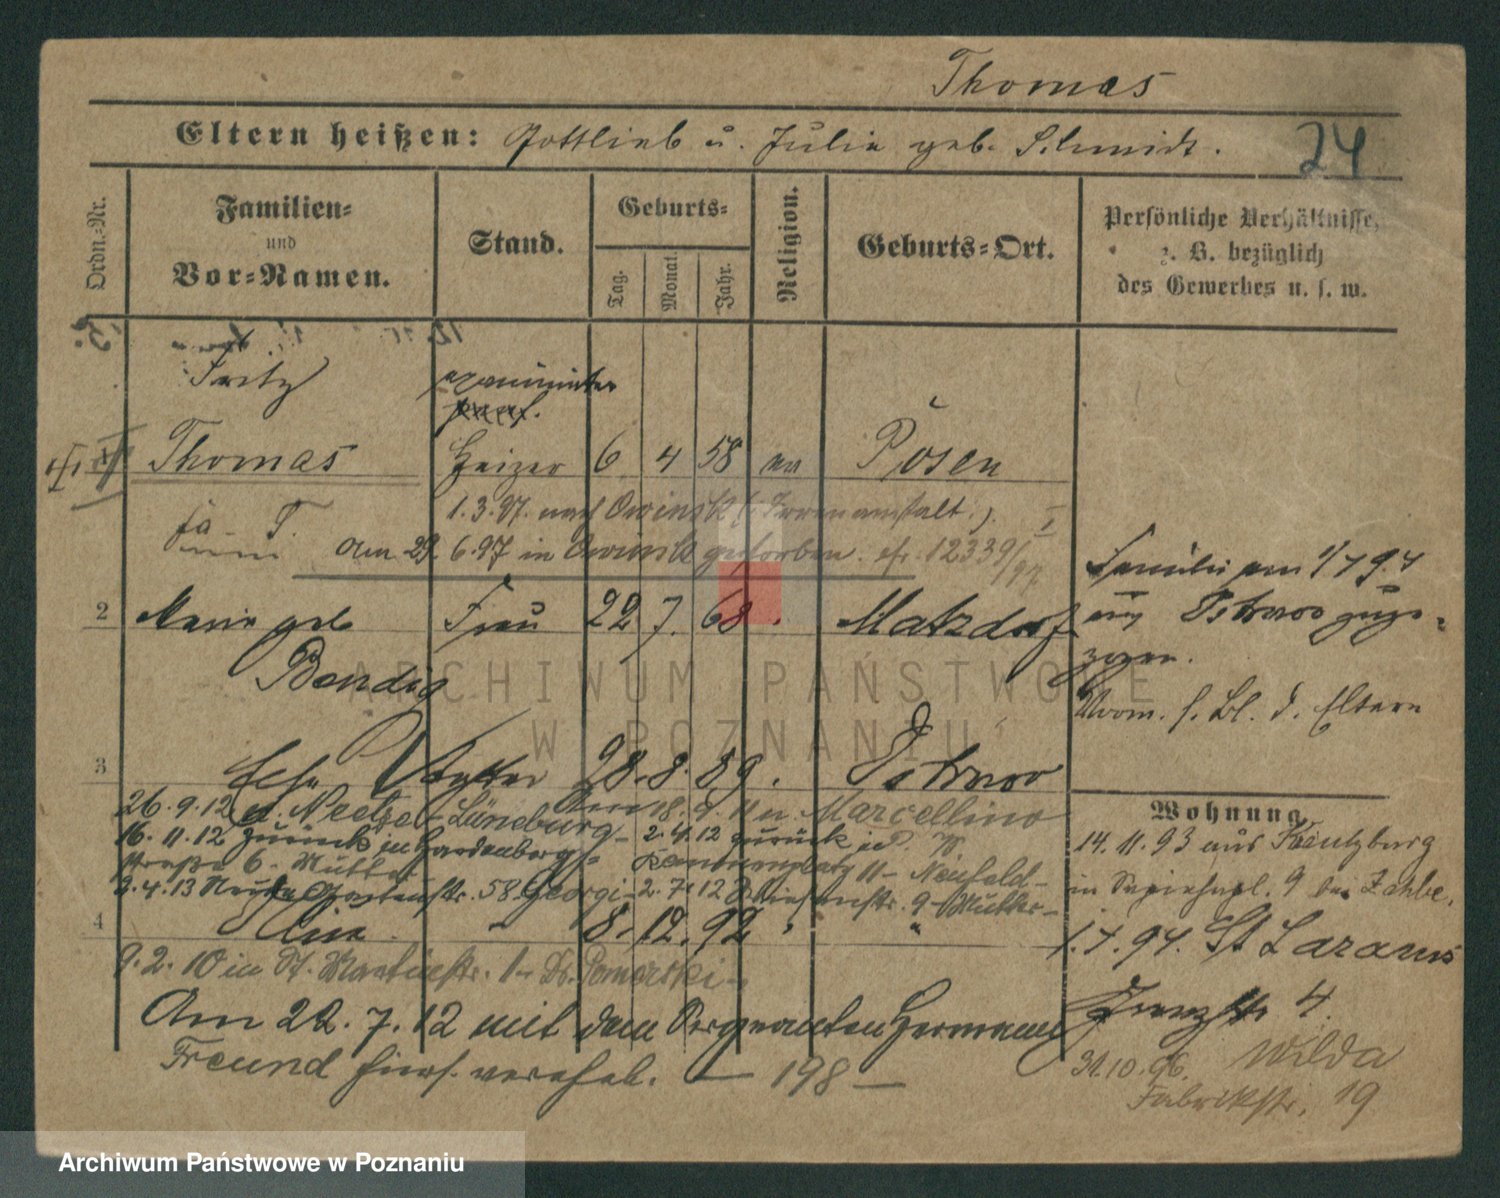 Thomas
Eltern heißen: Gottlieb u. Julie geb. Schmidt.
24
Ordn.-Nr.
Familien- und Vor-Namen.
Stand.
Geburts-
Tag.
Monat.
Jahr.
Religion.
Geburts-Ort.
Persönliche Verhältnisse,
z. B. bezüglich
des Gewerbes u. s. w.
Fritz
Thomas Heizer 6 4 58 ev Posen
1.3.97. nach Owinsk (Irrenanstalt.)
am 29. 6.97 in Owinsk gestorben. 12339/97
2 Marie geb Frau 22 7. 68 Matzdorf
Bendig
Familie am 1/7 97
aus Ostrowo zuge-
zogen.
Vorm. s. Bl. d. Eltern
3 Else 28. 8. 89. Ostrowo
26.9.12 n. Neetze - Lüneburg - 18. 9. 11 n. Marcellino
16.11.12 zurück in Hardenberg- 2.4.12 zurück
straße 6 - Mutter 11 - Neufeld-
2.4.13 Gartenstr. 58 Georgi- 2.7.12 9 - Mutter-
4 8. 12. 92 "
9.2.10 in St. Martinstr. 1 - Dr. Pomorski -
Am 22.7.12 mit dem Sergeanten Hermann
Freund hiers. verehel. — 198 —
Wohnung
14.11.93 aus Kreutzburg
in Sapiehapl. 9 bei
1.7.94. St Lazarus
4.
31.10.96. Wilda
Fabrikstr. 19
ARCHIWUM PAŃSTWOWE
W POZNANIU
Archiwum Państwowe w Poznaniu